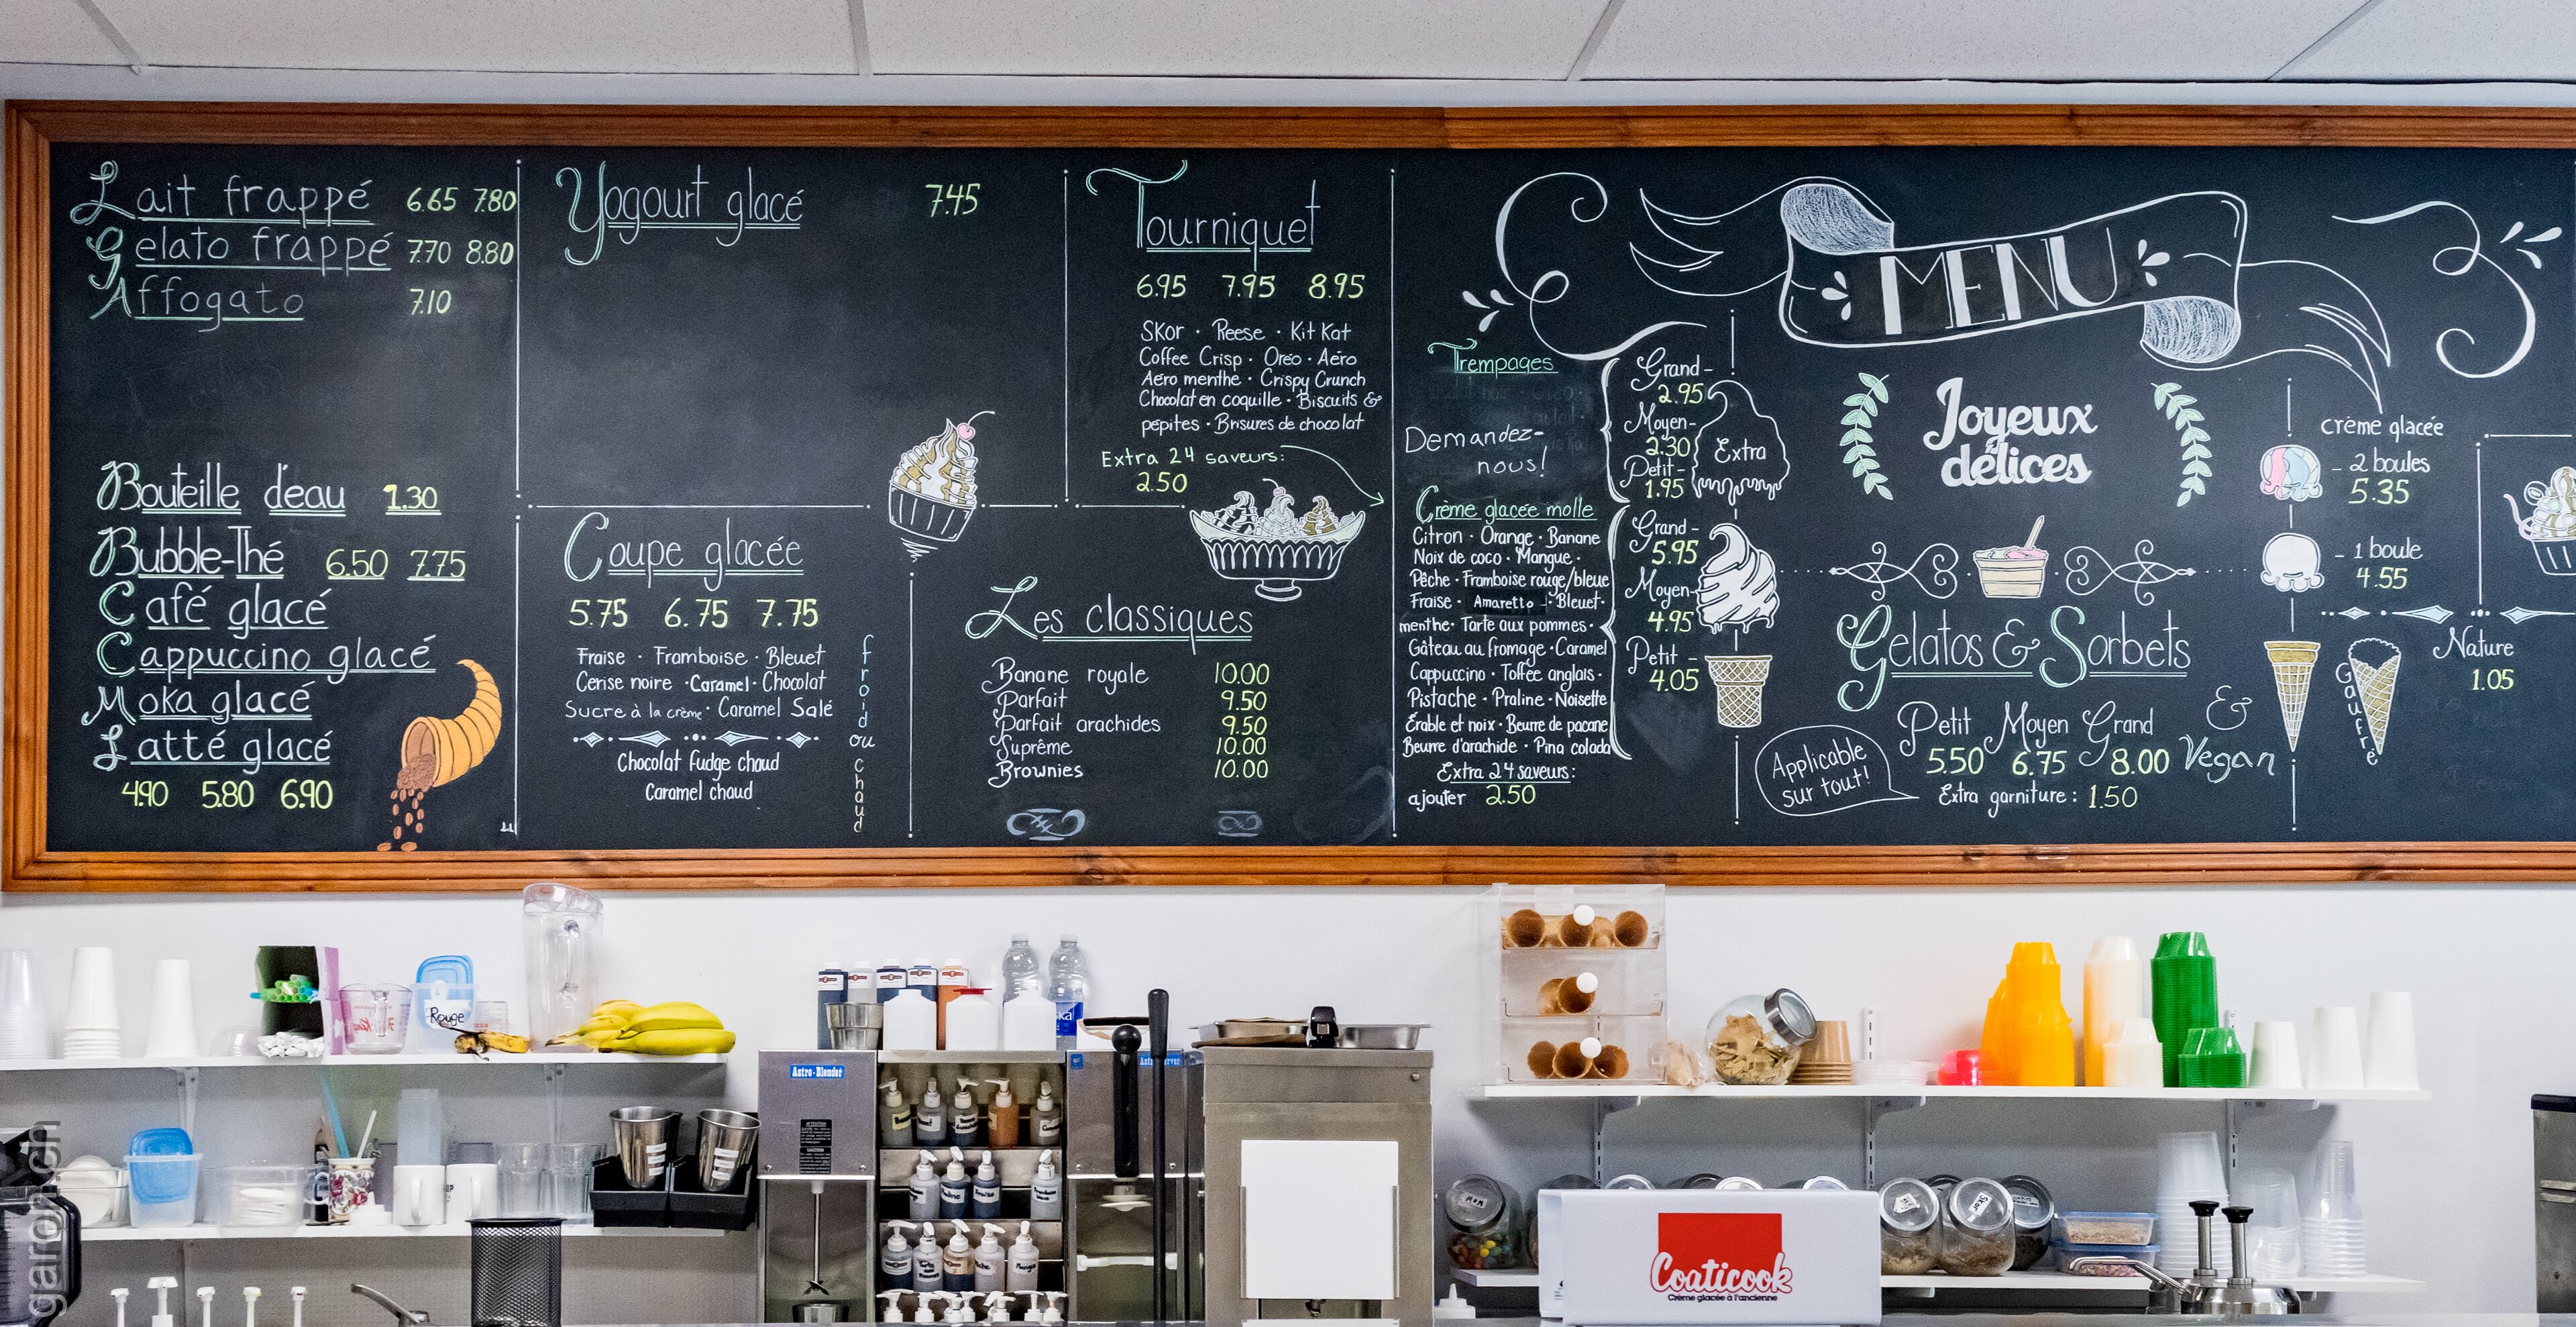 Lait frappé 6.65 7.80
Gelato frappé 7.70 8.80
Affogato 7.10
Bouteille d'eau 1.30
Bubble-Thé 6.50 7.75
Café glacé
Cappuccino glacé
Moka glacé
Latté glacé
4.90 5.80 6.90
Yogourt glacé 7.45
Coupe glacée
5.75 6.75 7.75
Fraise · Framboise · Bleuet
Cerise noire · Caramel · Chocolat
Sucre à la crème · Caramel Salé
Chocolat fudge chaud
Caramel chaud
froid ou chaud
Tourniquet
6.95 7.95 8.95
Skor · Reese · Kit Kat
Coffee Crisp · Oréo · Aéro
Aéro menthe · Crispy Crunch
Chocolat en coquille · Biscuits &
pépites · Brisures de chocolat
Extra 24 saveurs:
2.50
Les classiques
Banane royale 10.00
Parfait 9.50
Parfait arachides 9.50
Suprême 10.00
Brownies 10.00
Trempages
Demandez-
nous!
Grand -
2.95
Moyen-
2.30
Petit-
1.95
Extra
Crème glacée molle
Citron · Orange · Banane
Noix de coco · Mangue ·
Pêche · Framboise rouge/bleue
Fraise · Amaretto · Bleuet ·
menthe · Tarte aux pommes ·
Gâteau au fromage · Caramel
Cappuccino · Toffée anglais ·
Pistache · Praline · Noisette
Érable et noix · Beurre de pacane
Beurre d'arachide · Pina colada
Extra 24 saveurs:
ajouter 2.50
Grand -
5.95
Moyen-
4.95
Petit -
4.05
MENU
Joyeux
délices
Gelatos & Sorbets
& Vegan
Petit Moyen Grand
5.50 6.75 8.00
Extra garniture: 1.50
Applicable
sur tout!
crème glacée
- 2 boules
5.35
- 1 boule
4.55
Gaufré
Nature
1.05
Rouge
Astro-Blender
Coaticook
Crème glacée à l'ancienne
garon.ch